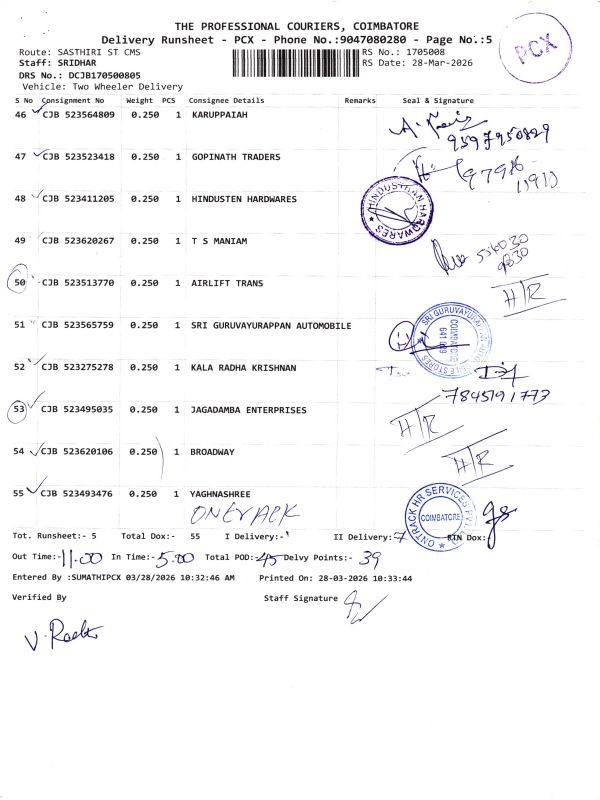 THE PROFESSIONAL COURIERS, COIMBATORE
Delivery Runsheet - PCX - Phone No.:9047080280 - Page No.:5
PCX
Route: SASTHIRI ST CMS
RS No.: 1705008
Staff: SRIDHAR
RS Date: 28-Mar-2026
DRS No.: DCJB170500805
Vehicle: Two Wheeler Delivery
S No Consignment No Weight PCS Consignee Details Remarks Seal & Signature
46 CJB 523564809 0.250 1 KARUPPAIAH
9597950829
47 CJB 523523418 0.250 1 GOPINATH TRADERS
48 CJB 523411205 0.250 1 HINDUSTEN HARDWARES
HINDUSTHAN HARDWARES
49 CJB 523620267 0.250 1 T S MANIAM
50 CJB 523513770 0.250 1 AIRLIFT TRANS
H/R
51 CJB 523565759 0.250 1 SRI GURUVAYURAPPAN AUTOMOBILE
SRI GURUVAYURAPPAN
COIMBATORE
52 CJB 523275278 0.250 1 KALA RADHA KRISHNAN
7845191773
53 CJB 523495035 0.250 1 JAGADAMBA ENTERPRISES
H/R
54 CJB 523620106 0.250 1 BROADWAY
H/R
55 CJB 523493476 0.250 1 YAGHNASHREE
ONTRACK HR SERVICES
COIMBATORE
Tot. Runsheet:- 5 Total Dox:- 55 I Delivery:- II Delivery:- 7 RTN Dox:
Out Time:- 11.00 In Time:- 5.00 Total POD:- 45 Delvy Points:- 39
Entered By :SUMATHIPCX 03/28/2026 10:32:46 AM Printed On: 28-03-2026 10:33:44
Verified By Staff Signature